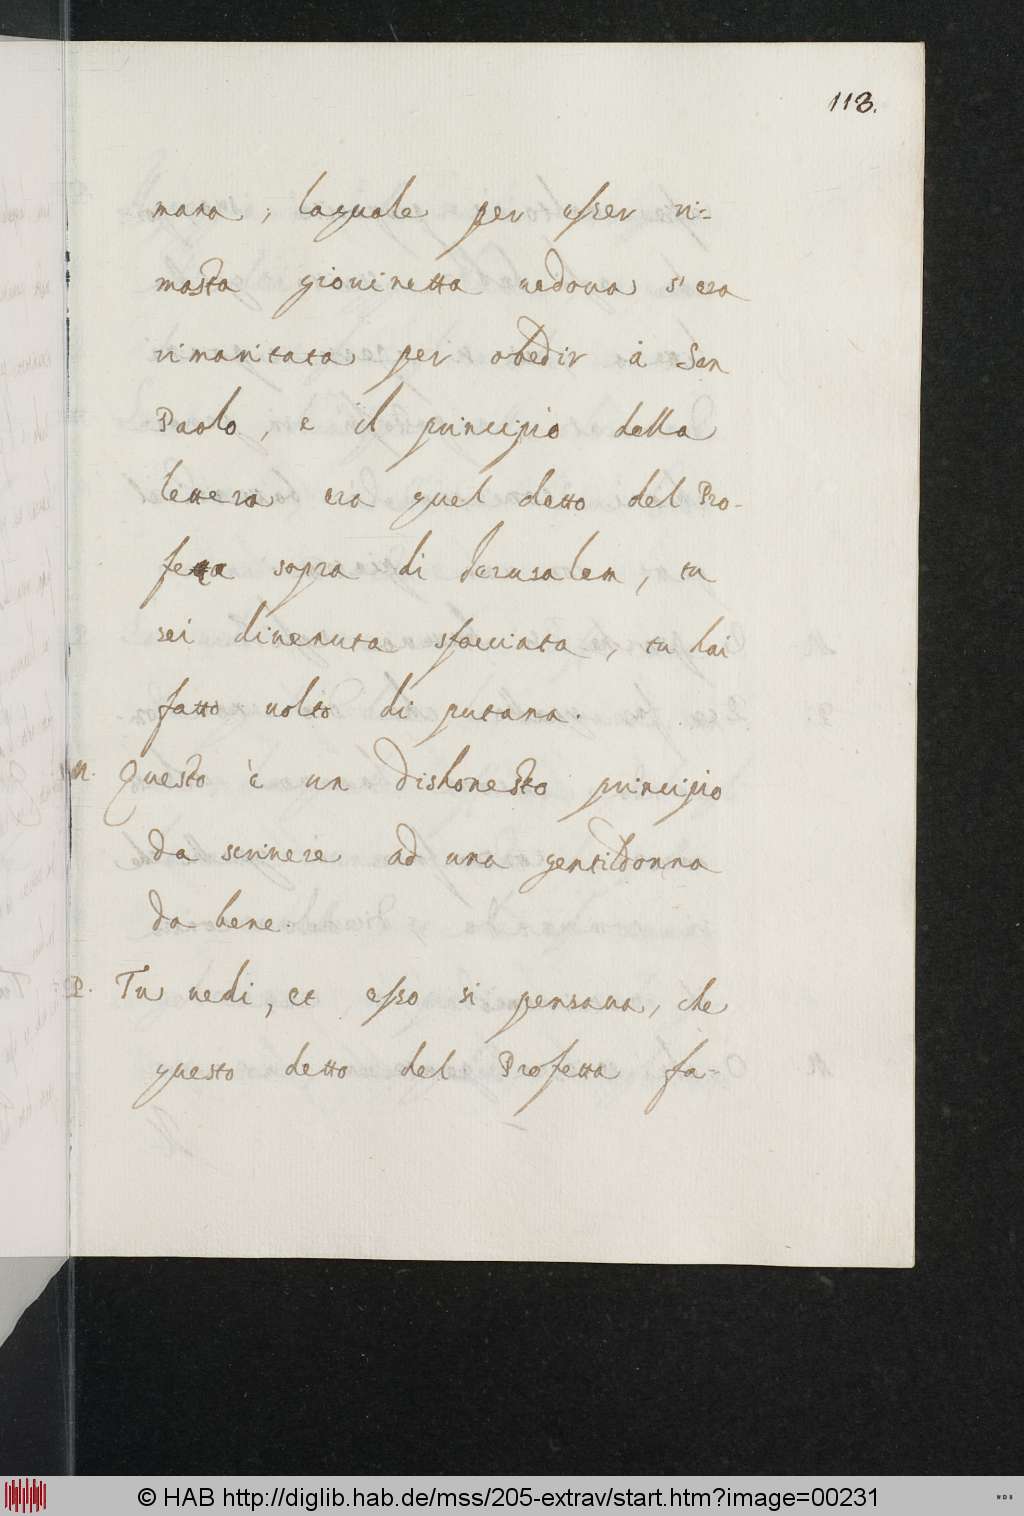 113.
mana, laquale per esser ri=
masta giovinetta uedoua s'era
rimaritata per obedir à San
Paolo, e il principio della
lettera era quel detto del Pro-
feta sopra di Jerusalem, tu
sei diuenuta sfacciata, tu hai
fatto uolto di putana.
M. Questo è un dishonesto principio
da scriuere ad una gentildonna
da bene.
P. Tu uedi, et esso si pensaua, che
questo detto del Profetta fa-
© HAB http://diglib.hab.de/mss/205-extrav/start.htm?image=00231